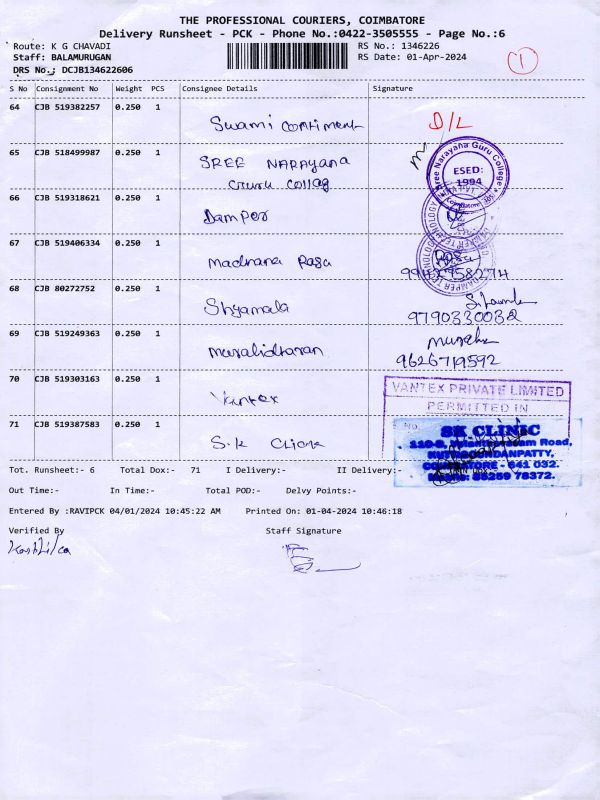 THE PROFESSIONAL COURIERS, COIMBATORE
Delivery Runsheet - PCK - Phone No.:0422-3505555 - Page No.:6
Route: K G CHAVADI
RS No.: 1346226
Staff: BALAMURUGAN
RS Date: 01-Apr-2024
DRS No.: DCJB134622606
1
S No Consignment No Weight PCS Consignee Details Signature
64 CJB 519382257 0.250 1
Swami contiment D/L
65 CJB 518499987 0.250 1
SREE NARAYANA
crush collag
Sree Narayana Guru College
ESED:
1994
Coimbatore
66 CJB 519318621 0.250 1
Damper
DAMPER TECHNOLOGY
67 CJB 519406334 0.250 1
madnana Rasa Rasa
68 CJB 80272752 0.250 1
Shyamala
9790330032
69 CJB 519249363 0.250 1
muralidharan
9626719592
70 CJB 519303163 0.250 1
Vantex
VANTEX PRIVATE LIMITED
PERMITTED IN
No.
71 CJB 519387583 0.250 1
S.K Clionk
SK CLINIC
Road,
COIMBATORE - 641 032.
Tot. Runsheet:- 6 Total Dox:- 71 I Delivery:- II Delivery:-
Out Time:- In Time:- Total POD:- Delvy Points:-
Entered By :RAVIPCK 04/01/2024 10:45:22 AM Printed On: 01-04-2024 10:46:18
Verified By Staff Signature